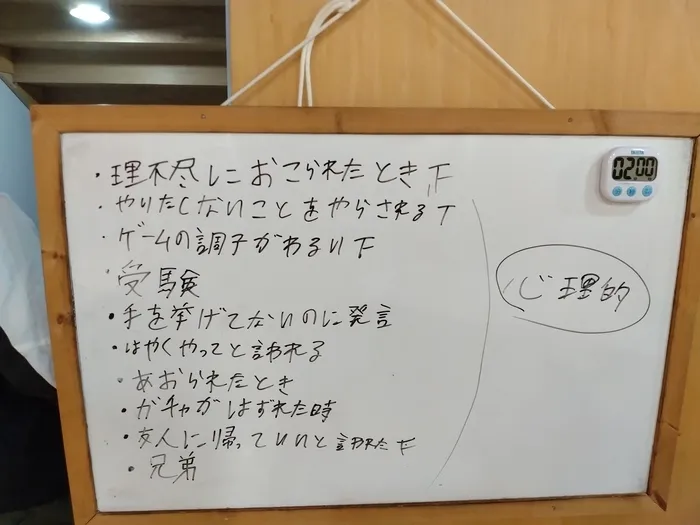 ・理不尽におこられたとき F
・やりたくないことをやらされる T
・ゲームの調子がわるい F
・受験
・手を挙げてないのに発言
・はやくやってと言われる
・あおられたとき
・ガチャがはずれた時
・友人に帰っていいと言われた F
・兄弟
心理的
02:00